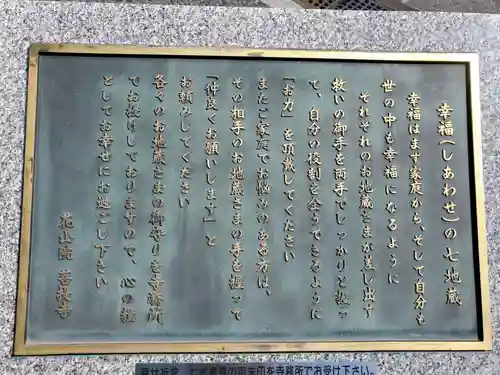 幸福(しあわせ)の七地蔵
幸福はまず家庭から、そして自分も
世の中も幸福になるように
それぞれのお地蔵さまが差し出す
救いの御手を両手でしっかりと握っ
て、自分の役割を全うできるように
「お力」を頂戴してください
またご家庭でお悩みのある方は、
その相手のお地蔵さまの手を握って
「仲良くお願いします」と
お頼みしてください
各々のお地蔵さまの御守りを寺務所
でお授けしておりますので、心の糧
としてお幸せにお過ごし下さい
花山院 菩提寺
七地蔵尊の御朱印を寺務所でお受け下さい。